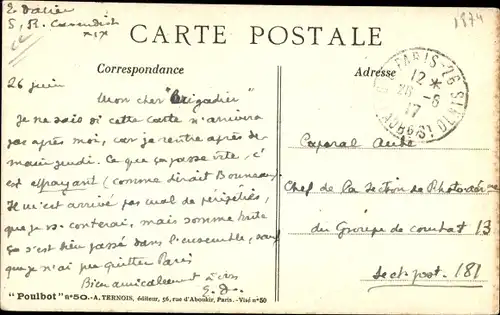 E. Datien
5, R. Cavendish
XIX
1874
CARTE POSTALE
Correspondance
Adresse
PARIS-26
12 *
26 -6
17
FAUBG ST DENIS
26 juin
Mon cher "Brigadier"
Je ne sais si cette carte n'arrivera
pas après moi, car je rentre après de-
main jeudi. Ce que ça passe vite, c'
est effrayant (comme dirait Bonneau).
Il m'est arrivé pas mal de péripéties,
que je vous conterai, mais somme toute
ça s'est bien passé dans l'ensemble, sauf
que je n'ai pu quitter Paris
Bien amicalement à vous
E. D.
Caporal Aubé
Chef de la Section de Photo aérienne
du Groupe de combat 13
Sect. post. 181
"Poulbot" n° 50.-A. TERNOIS, éditeur, 56, rue d'Aboukir, Paris. - Visé n° 50